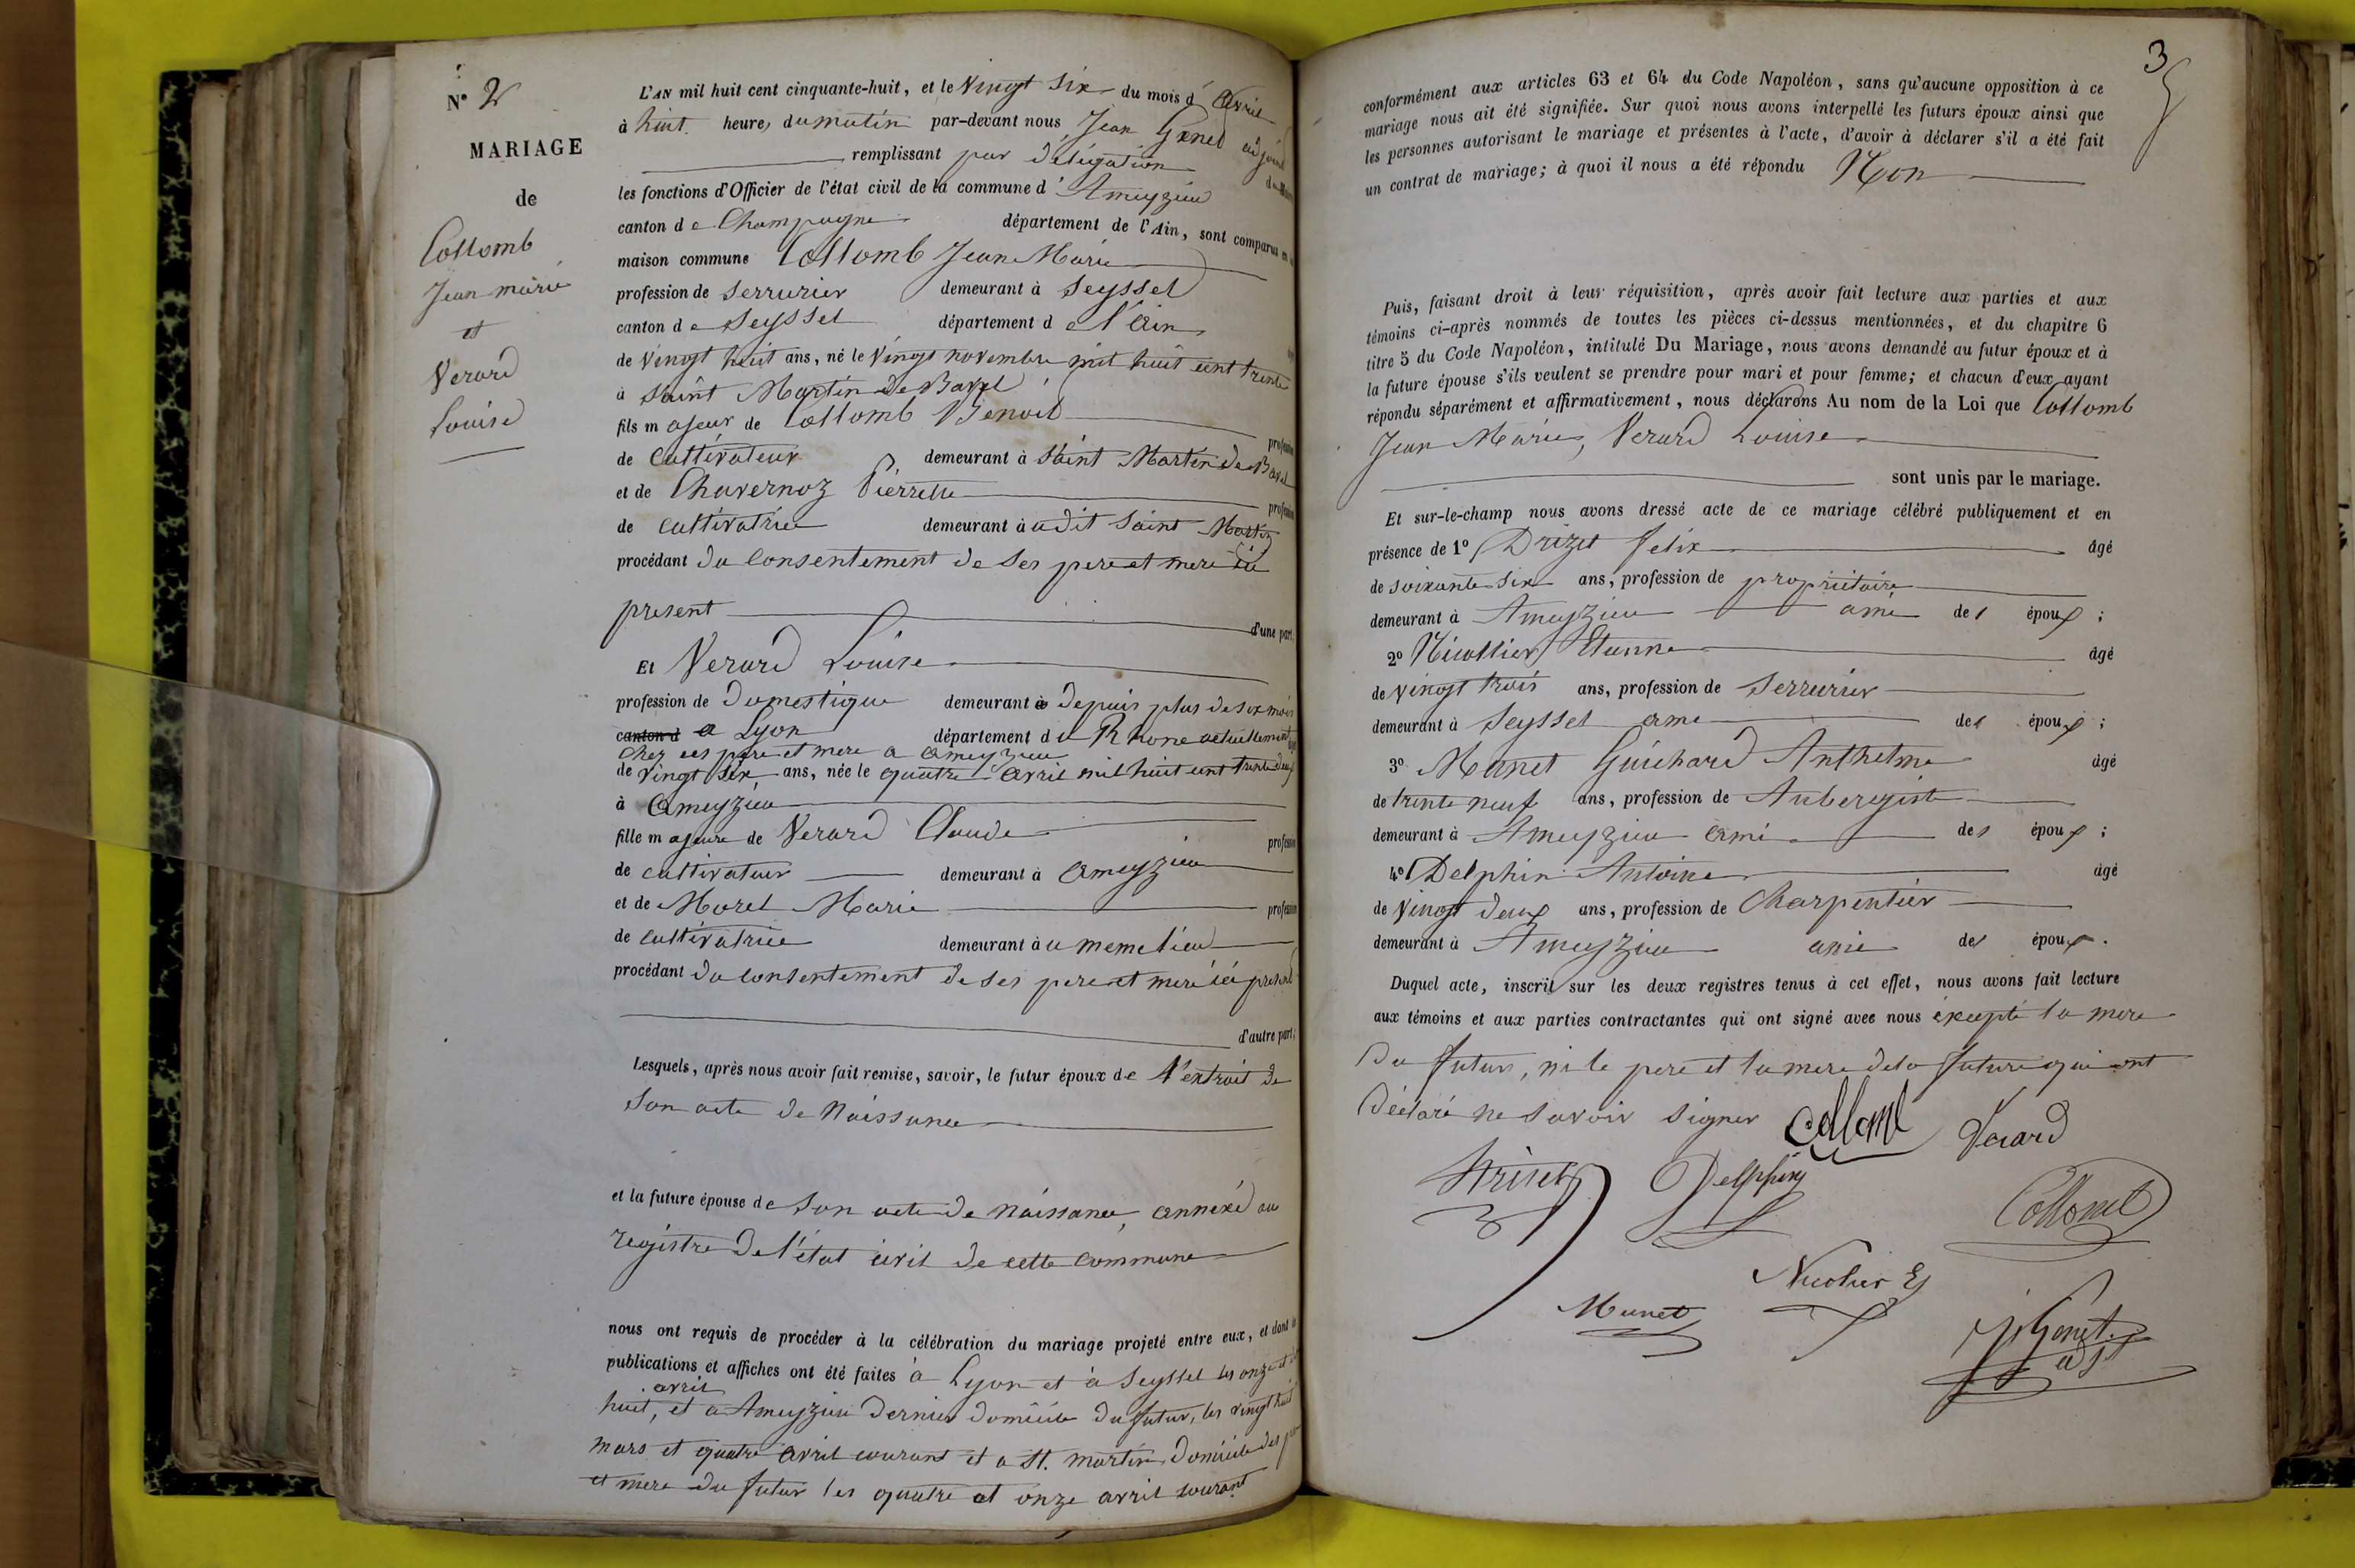 N° 2
MARIAGE
de
Collomb
Jean marie
et
Verard
Louise
L'AN mil huit cent cinquante-huit, et le Vingt six du mois d' Avril
à huit heures du matin par-devant nous Jean Genet adjoint
remplissant par délégation du Maire
les fonctions d'Officier de l'état civil de la commune d' Ameyzieu
canton de Champagne département de l'Ain, sont comparus en
maison commune Collomb Jean Marie
profession de Serrurier demeurant à Seyssel
canton de Seyssel département de l'Ain
de Vingt huit ans, né le Vingt novembre mil huit cent trente
à Saint Martin de Bavel
fils majeur de Collomb Benoit profession
de Cultivateur demeurant à Saint Martin de Bavel
et de Chavernoz Pierrette profession
de cultivatrice demeurant à udit Saint Martin
procédant du consentement de ses pere et mere ici
present d'une part,
Et Verard Louise
profession de Domestique demeurant à depuis plus de six mois
canton d a Lyon département du Rhone actuellement
chez ses pere et mere a Ameyzieu
de Vingt six ans, née le quatre Avril mil huit cent trente deux
à Ameyzieu
fille majeure de Verard Claude profession
de cultivateur demeurant à Ameyzieu
et de Morel Marie profession
de cultivatrice demeurant à u meme lieu
procédant du consentement de ses pere et mere ici present
d'autre part;
Lesquels, après nous avoir fait remise, savoir, le futur époux de l'extrait de
Son acte de Naissance
et la future épouse de Son acte de naissance, annexé au
registre de l'état civil de cette commune
nous ont requis de procéder à la célébration du mariage projeté entre eux, et dont les
publications et affiches ont été faites à Lyon et à Seyssel les onze et dix
avril
huit, et a Ameyzieu dernier domicile du futur, les vingt huit
mars et quatre avril courant et a St. martin domicile des pere
et mere du futur les quatre et onze avril courant
3
conformément aux articles 63 et 64 du Code Napoléon, sans qu'aucune opposition à ce
mariage nous ait été signifiée. Sur quoi nous avons interpellé les futurs époux ainsi que
les personnes autorisant le mariage et présentes à l'acte, d'avoir à déclarer s'il a été fait
un contrat de mariage; à quoi il nous a été répondu Non
Puis, faisant droit à leur réquisition, après avoir fait lecture aux parties et aux
témoins ci-après nommés de toutes les pièces ci-dessus mentionnées, et du chapitre 6
titre 5 du Code Napoléon, intitulé Du Mariage, nous avons demandé au futur époux et à
la future épouse s'ils veulent se prendre pour mari et pour femme; et chacun d'eux ayant
répondu séparément et affirmativement, nous déclarons Au nom de la Loi que Collomb
Jean Marie, Verard Louise
sont unis par le mariage.
Et sur-le-champ nous avons dressé acte de ce mariage célébré publiquement et en
présence de 1° Drizet felix âgé
de soixante six ans, profession de propriétaire
demeurant à Ameyzieu ami des époux;
2° Nicollier Etienne âgé
de vingt trois ans, profession de Serrurier
demeurant à Seyssel ami des époux;
3° Munet Guichard Anthelme âgé
de trente neuf ans, profession de Aubergiste
demeurant à Ameyzieu ami des époux;
4° Delphin Antoine âgé
de vingt deux ans, profession de Charpentier
demeurant à Ameyzieu ami des époux.
Duquel acte, inscrit sur les deux registres tenus à cet effet, nous avons fait lecture
aux témoins et aux parties contractantes qui ont signé avec nous excepté la mere
du futur, ni le pere et la mere de la future qui ont
déclaré ne savoir signer Collomb Verard
Delphin
Collomb
Nicolier E
Munet
J Genet
adjt